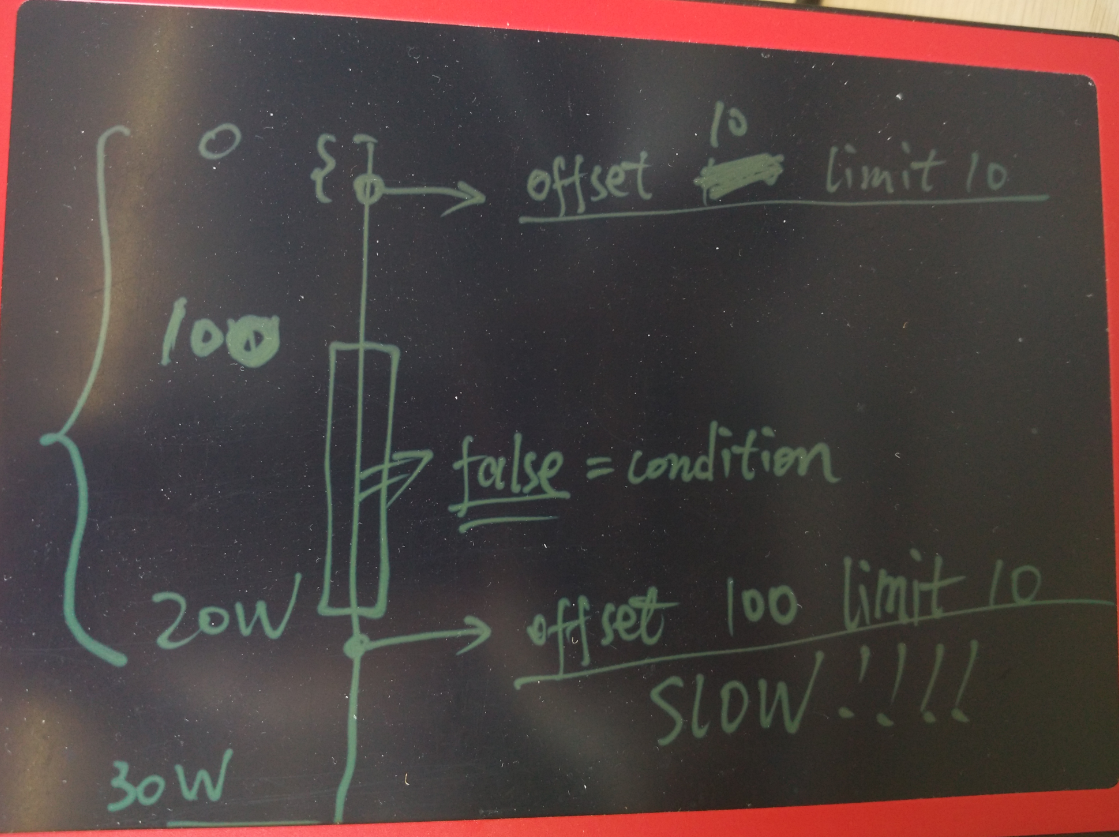 0
10
offset limit 10
100
false = condition
20W
offset 100 limit 10
SLOW!!!!
30W